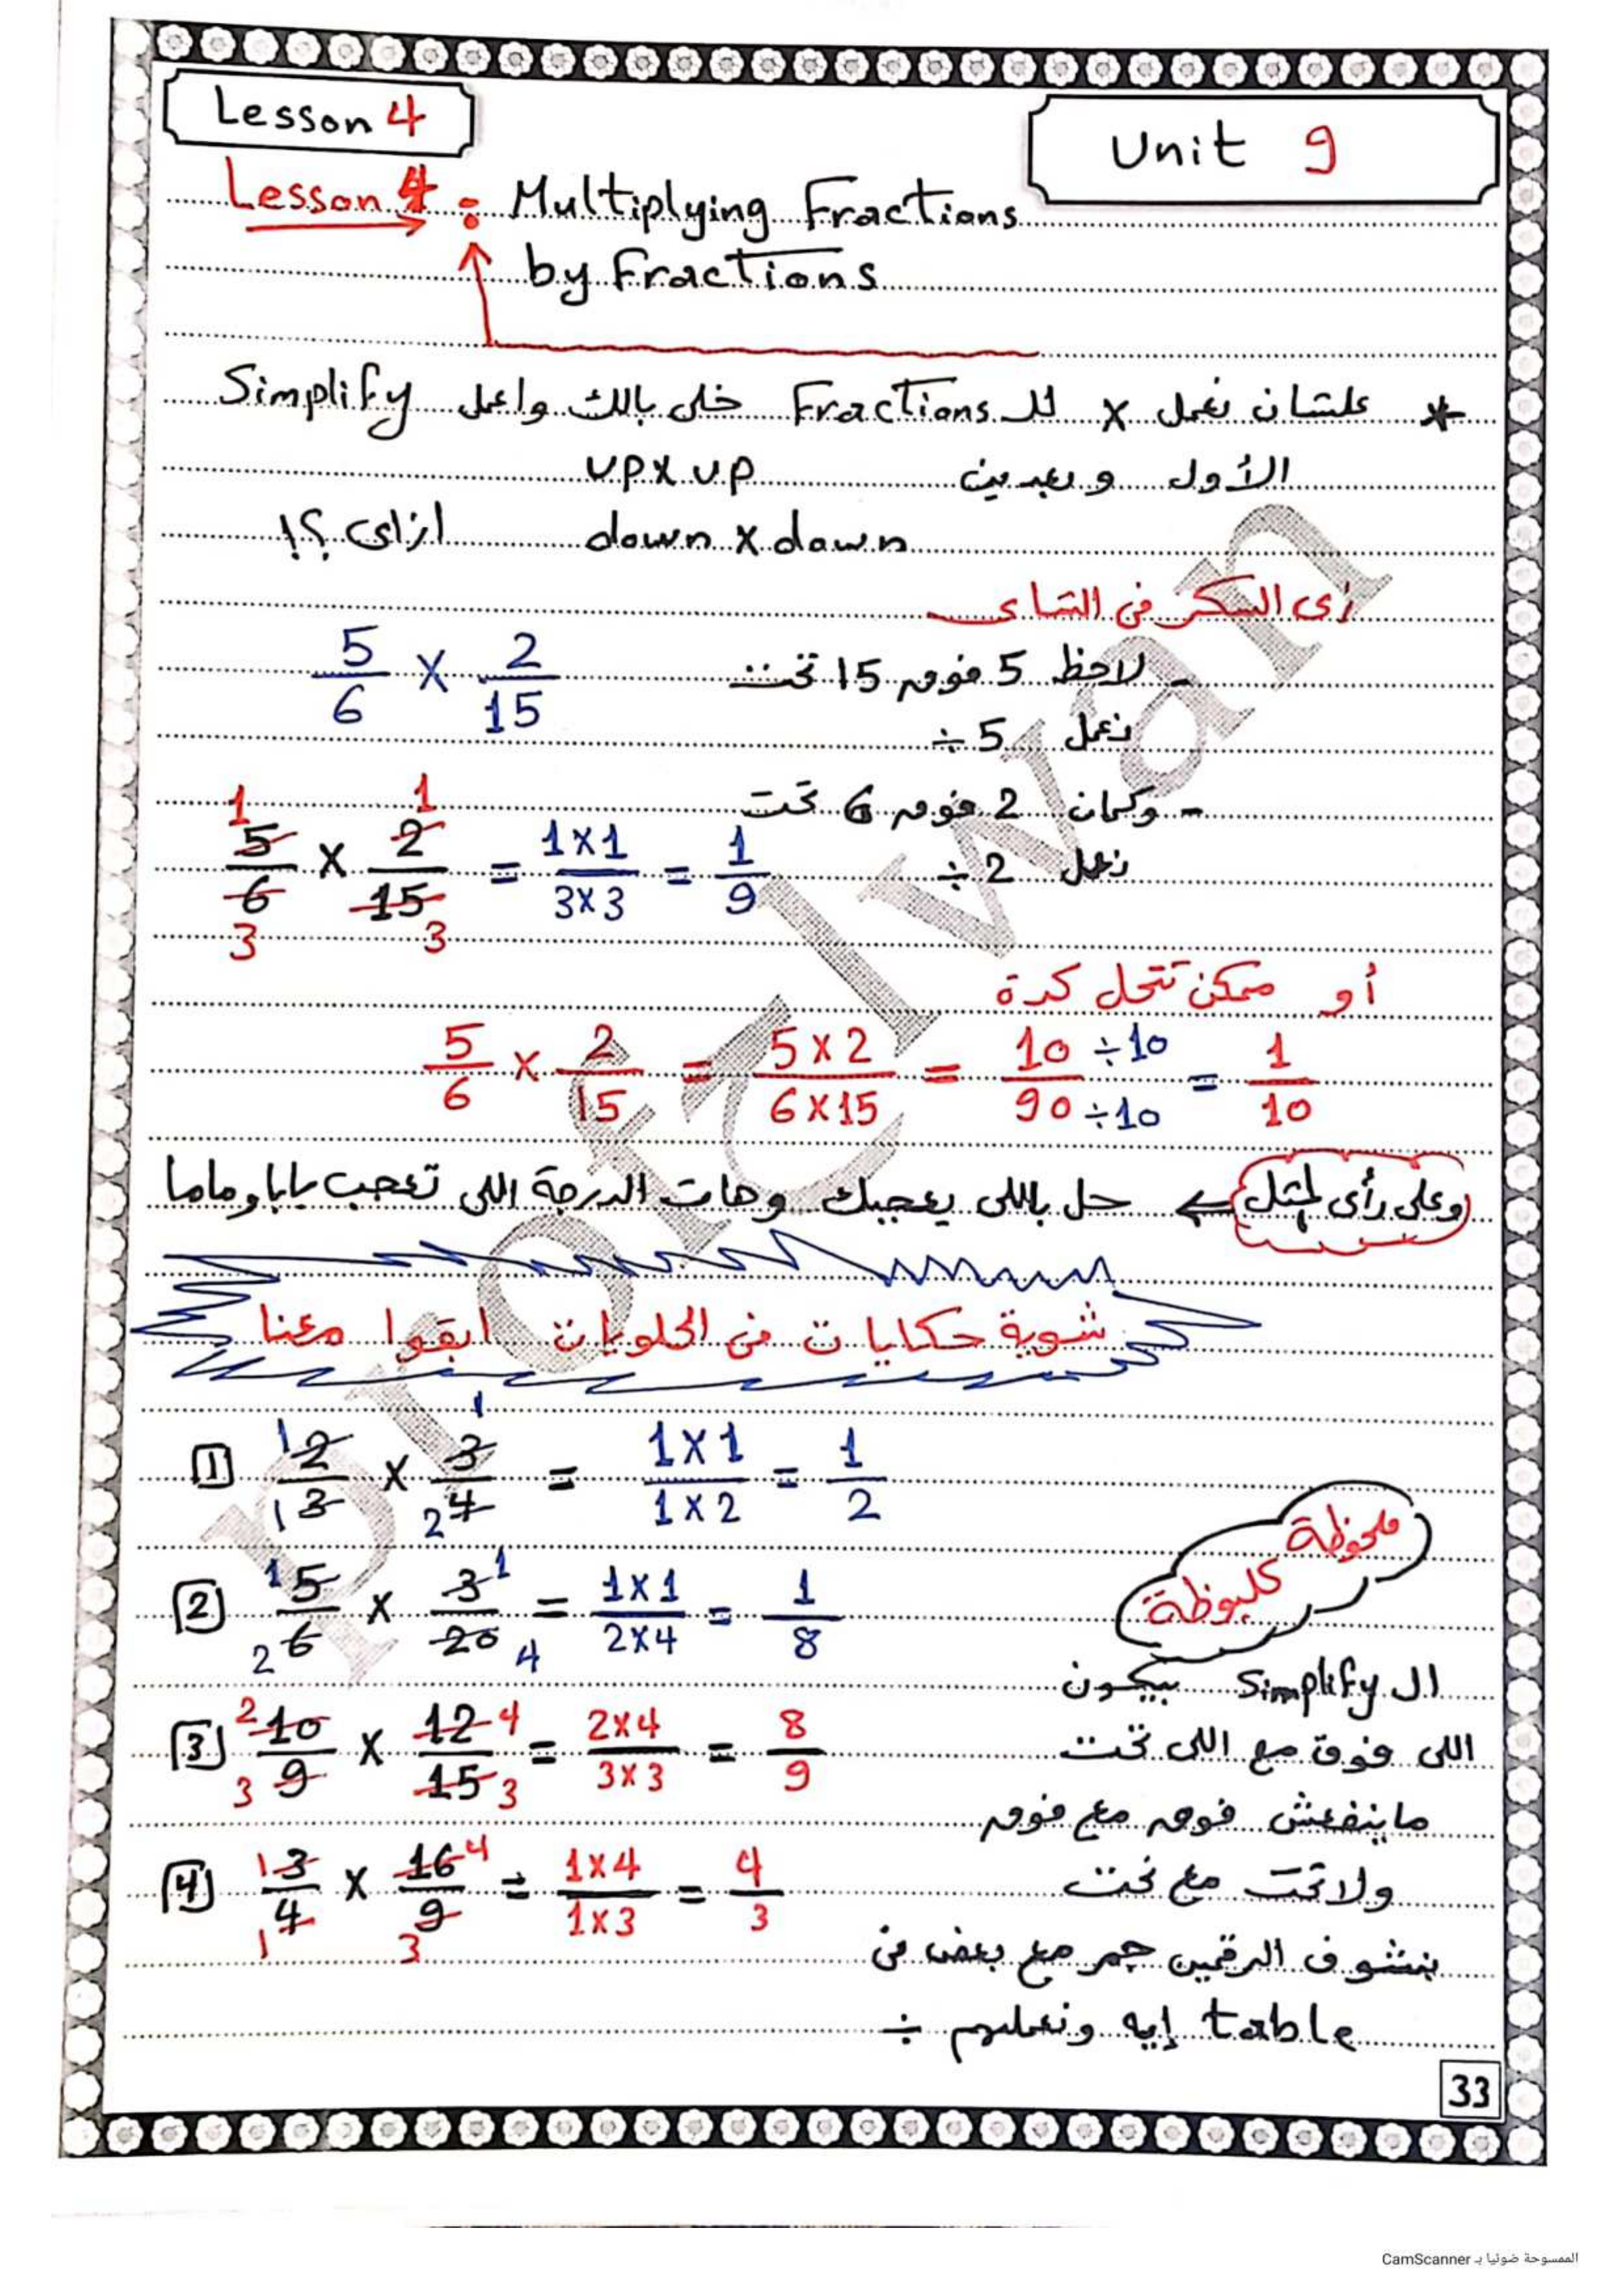 Lesson 4
Unit 9
Lesson 4 : Multiplying Fractions
by Fractions
* علشان نعمل x للـ Fractions خلى بالك واعمل Simplify
الأول وبعدين up x up
down x down ازاى ؟!
زى السكر فى الشاى
5/6 x 2/15
- لاحظ 5 فوق 15 تحت
نعمل 5 ÷
- وكمان 2 فوق 6 تحت
نعمل 2 ÷
1 1
5/6 x 2/15 = 1x1/3x3 = 1/9
3 3
أو ممكن تتحل كدة
5/6 x 2/15 = 5x2/6x15 = 10÷10/90÷10 = 1/10
وعلى رأى المثل ← حل باللى يعجبك وهات الدرجة اللى تعجب بابا وماما
شوية حكايات فى الحلويات ابقوا معنا
1 2/3 x 3/4 = 1x1/1x2 = 1/2
2 5/6 x 3/20 = 1x1/2x4 = 1/8
3 10/9 x 12/15 = 2x4/3x3 = 8/9
4 3/4 x 16/9 = 1x4/1x3 = 4/3
ملحوظة
كلبوظة
ال Simplify بيكون
اللى فوق مع اللى تحت
ماينفعش فوق مع فوق
ولا تحت مع تحت
بنشوف الرقمين جم مع بعض فى
table إيه ونعملهم ÷
33
الممسوحة ضوئيا بـ CamScanner